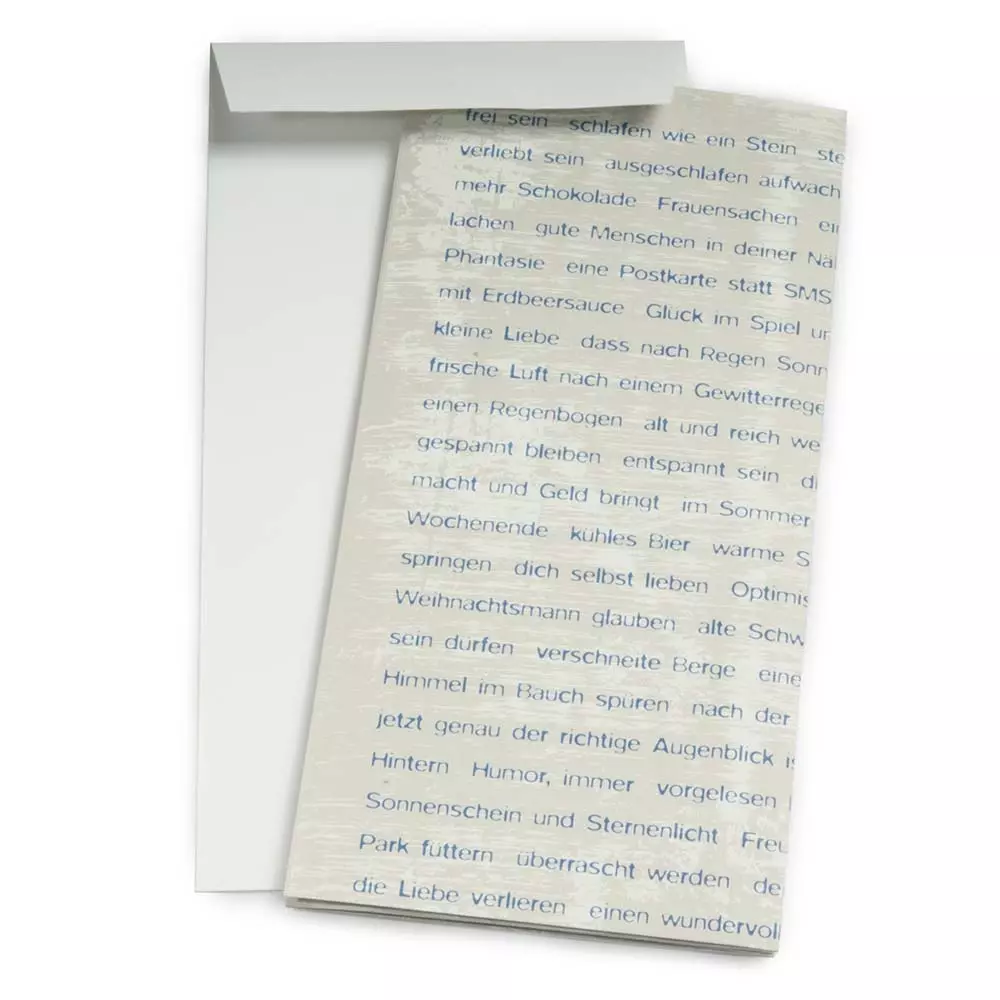 frei sein schlafen wie ein Stein ste
verliebt sein ausgeschlafen aufwach
mehr Schokolade Frauensachen ein
lachen gute Menschen in deiner Nä
Phantasie eine Postkarte statt SMS
mit Erdbeersauce Glück im Spiel un
kleine Liebe dass nach Regen Sonn
frische Luft nach einem Gewitterrege
einen Regenbogen alt und reich we
gespannt bleiben entspannt sein di
macht und Geld bringt im Sommer
Wochenende kühles Bier warme S
springen dich selbst lieben Optimis
Weihnachtsmann glauben alte Schw
sein dürfen verschneite Berge eine
Himmel im Bauch spüren nach der
jetzt genau der richtige Augenblick is
Hintern Humor, immer vorgelesen
Sonnenschein und Sternenlicht Freu
Park füttern überrascht werden de
die Liebe verlieren einen wundervoll